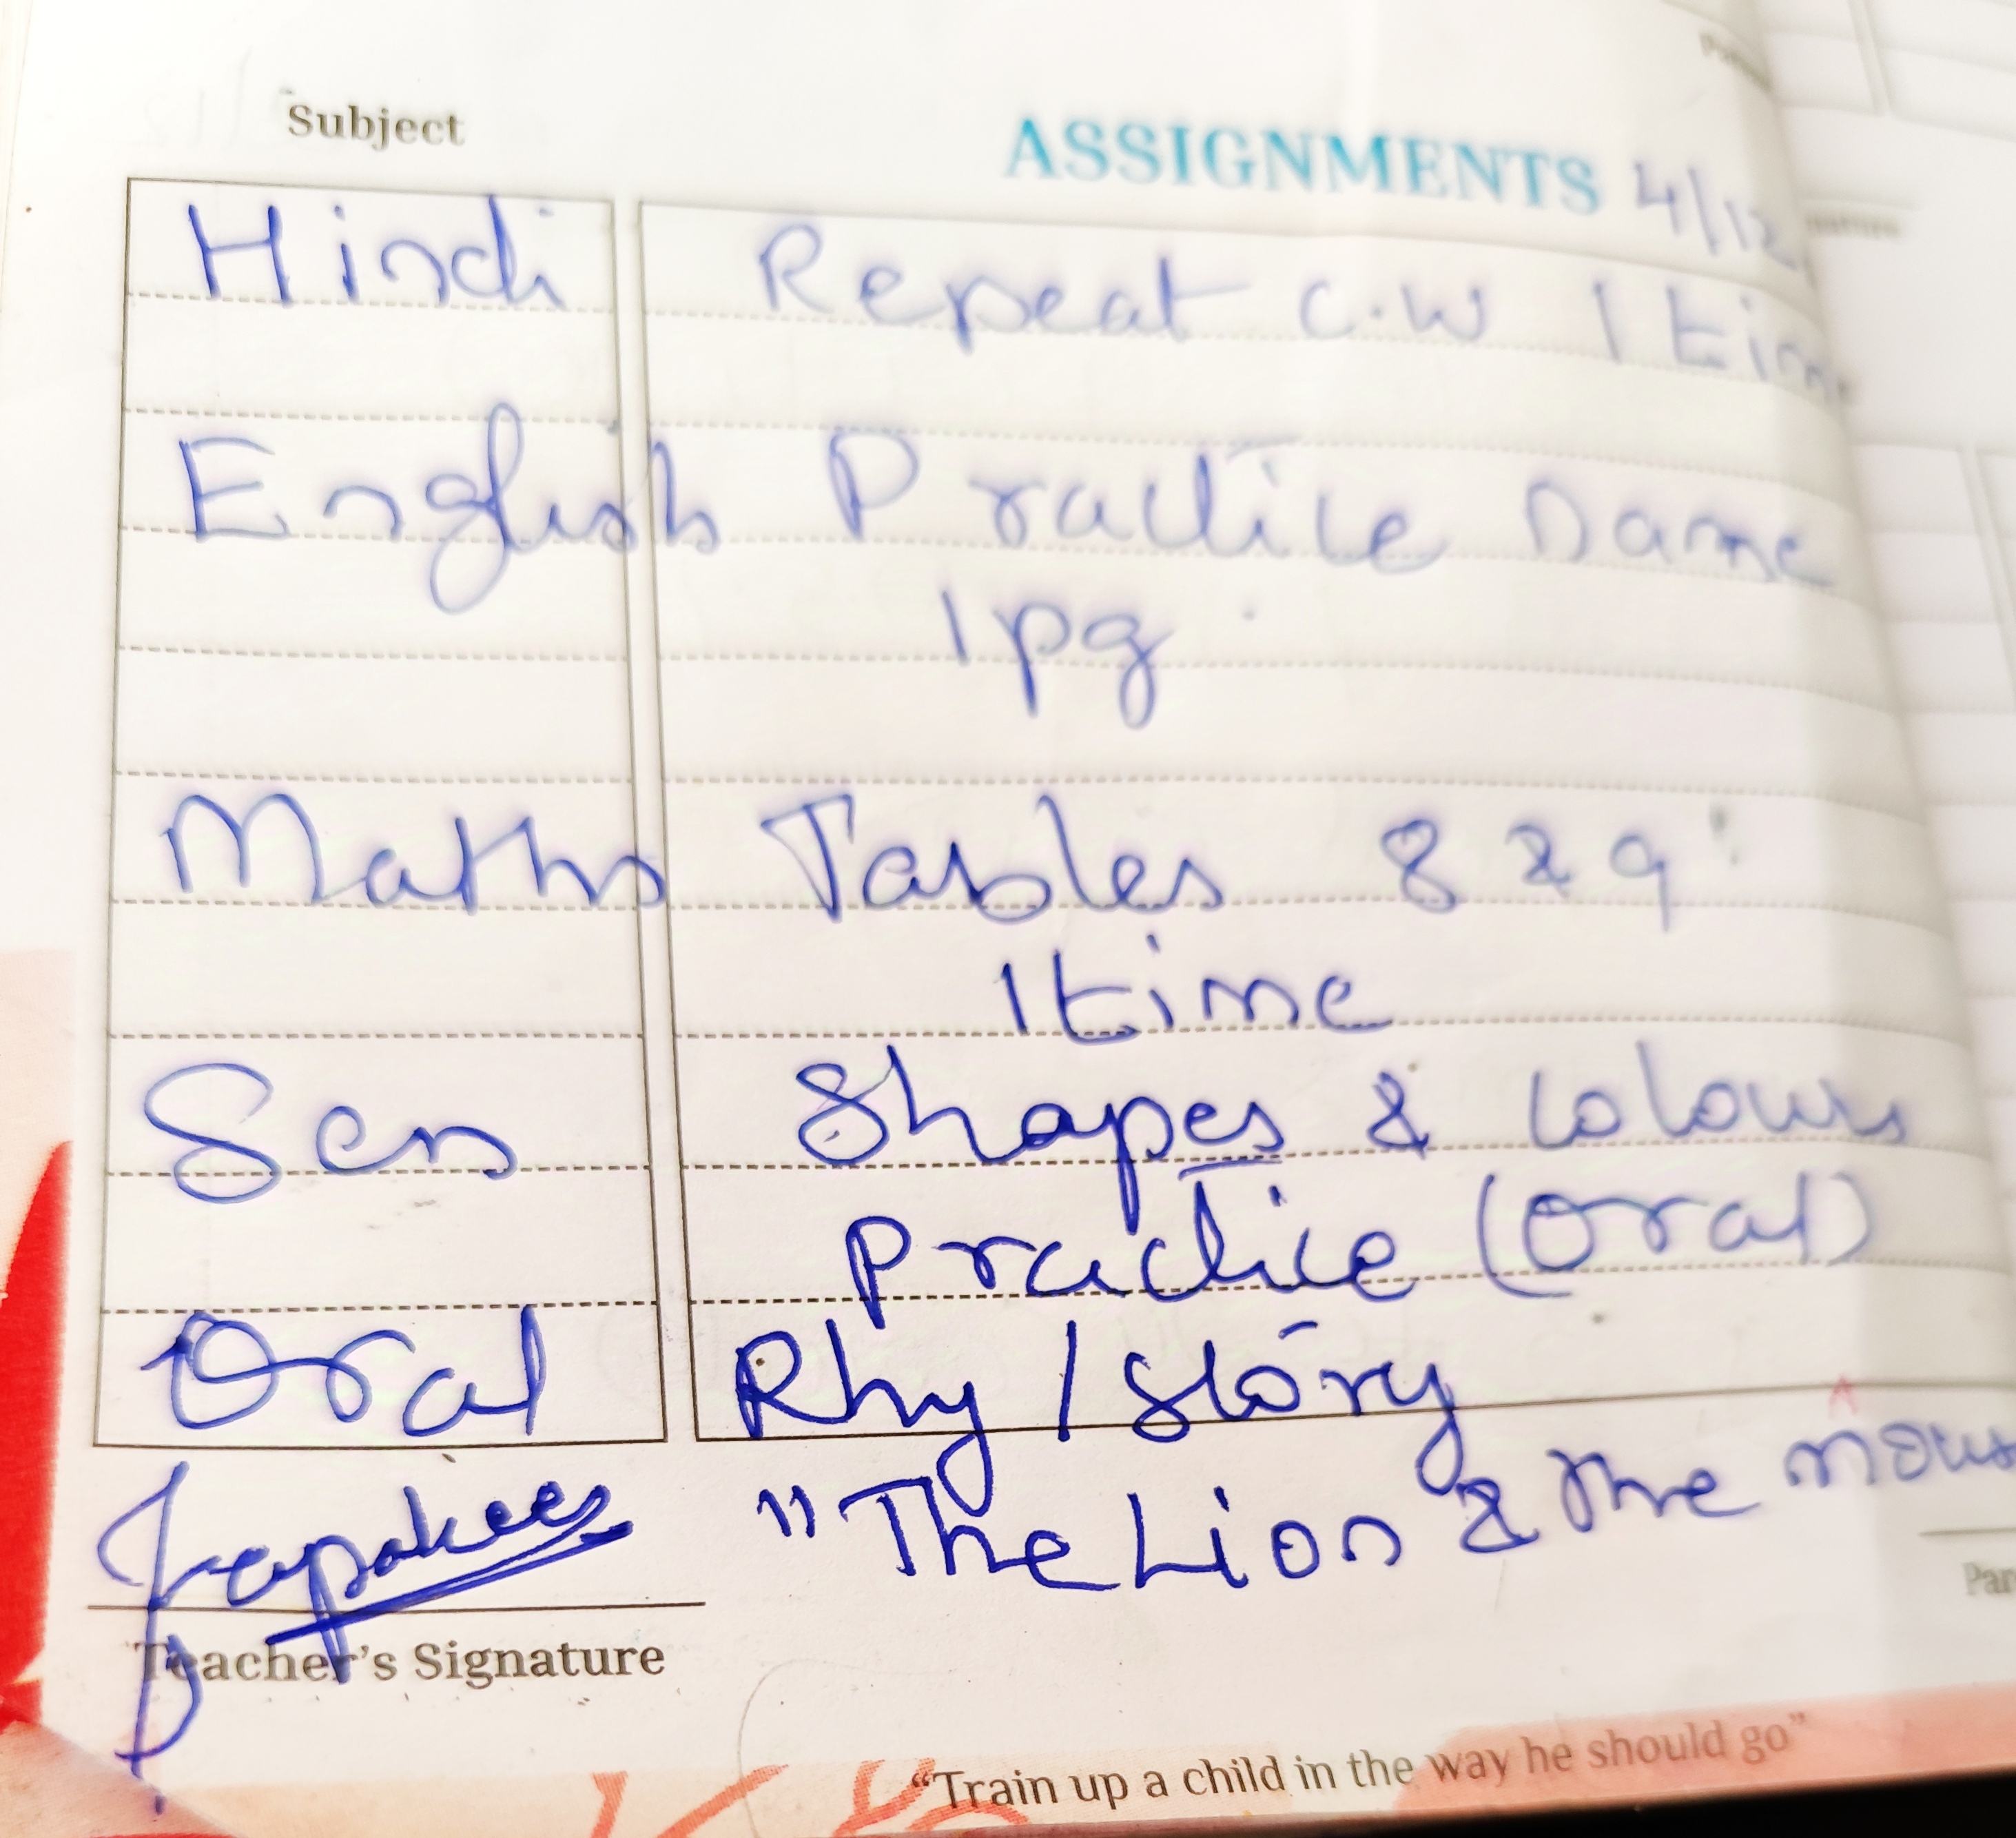 Subject
ASSIGNMENTS 4/12
Hindi Repeat C.W 1 time
English Practice name
1 pg
Maths Tables 8 & 9
1 time
Scn Shapes & colours
practice (oral)
Oral Rhy / Story
"The Lion & the mouse
Teacher's Signature
"Train up a child in the way he should go"